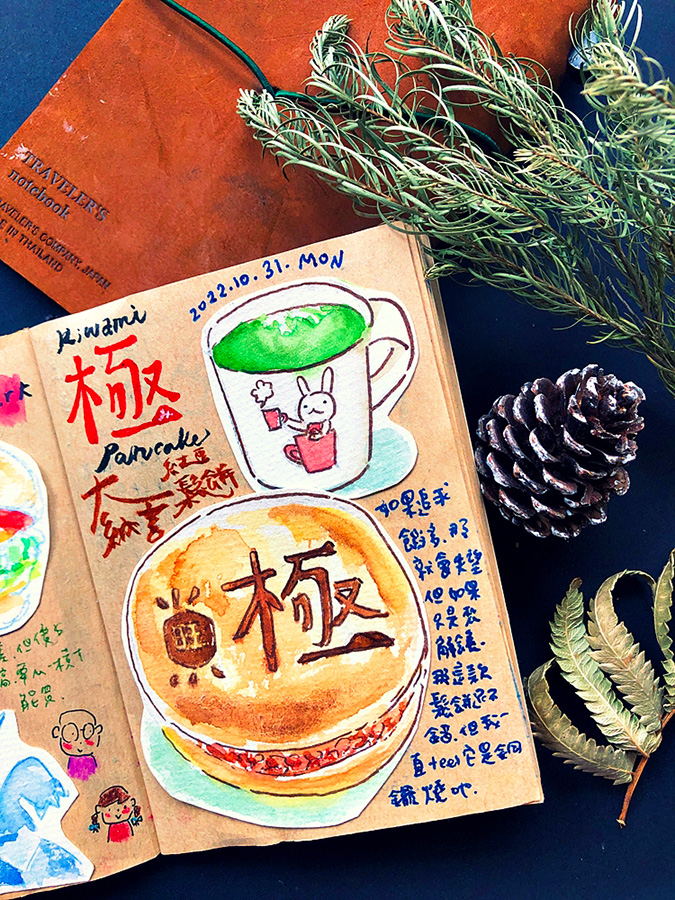 TRAVELER'S
notebook
TRAVELER'S COMPANY, JAPAN
MADE IN THAILAND
2022.10.31. MON
Kiwami
極
Pancake
紅豆
大納言鬆餅
旺
極
如果追求
餡多,那
就會失望
但如果
只是致
解饞.
那這款
鬆餅還不
錯.但我一
直feel它是銅
鑼燒吔.
能買.